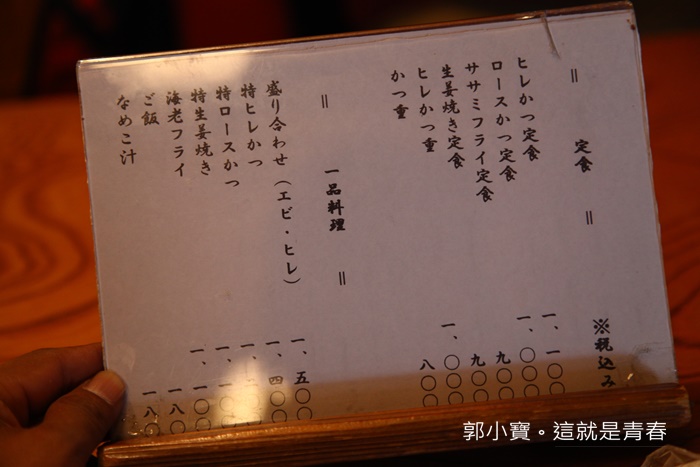 ※税込み
＝ 定食 ＝
ヒレかつ定食 一、一〇〇
ロースかつ定食 一、〇〇
ササミフライ定食 九〇〇
生姜焼き定食 九〇〇
ヒレかつ重 一、〇〇〇
かつ重 八〇〇
＝ 一品料理 ＝
盛り合わせ（エビ・ヒレ） 一、五〇〇
特ヒレかつ 一、四〇〇
特ロースかつ 一、
特生姜焼き 一、
海老フライ 一、一〇
ご飯 一八〇
なめこ汁 一八〇
郭小寶。這就是青春